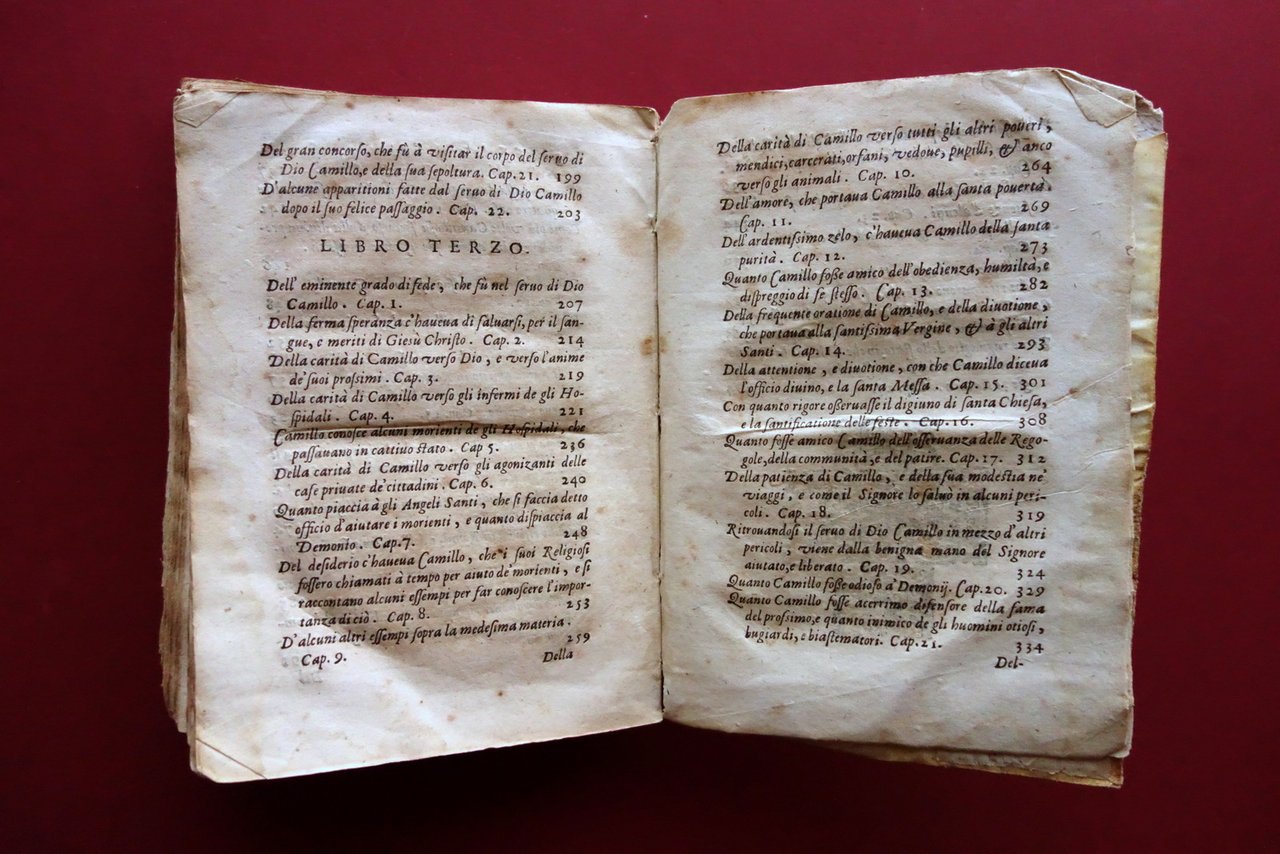 Del gran concorso, che fù à visitar il corpo del seruo di
Dio Camillo, e della sua sepoltura. Cap. 21. 199
D'alcune apparitioni fatte dal seruo di Dio Camillo
dopo il suo felice passaggio. Cap. 22. 203
LIBRO TERZO.
Dell' eminente grado di fede, che fù nel seruo di Dio
Camillo. Cap. 1. 207
Della ferma speranza c'haueua di saluarsi, per il san-
gue, e meriti di Giesù Christo. Cap. 2. 214
Della carità di Camillo verso Dio, e verso l'anime
de' suoi prossimi. Cap. 3. 219
Della carità di Camillo verso gli infermi de gli Ho-
spidali. Cap. 4. 221
Camillo conosce alcuni morienti de gli Hospidali, che
passauano in cattiuo stato. Cap 5. 236
Della carità di Camillo verso gli agonizanti delle
case priuate de' cittadini. Cap. 6. 240
Quanto piaccia à gli Angeli Santi, che si faccia detto
officio d'aiutare i morienti, e quanto dispiaccia al
Demonio. Cap. 7. 248
Del desiderio c'haueua Camillo, che i suoi Religiosi
fossero chiamati à tempo per aiuto de' morienti, e si
raccontano alcuni essempi per far conoscere l'impor-
tanza di ciò. Cap. 8. 253
D'alcuni altri essempi sopra la medesima materia.
Cap. 9. 259
Della
Della carità di Camillo verso tutti gli altri poueri,
mendici, carcerati, orfani, vedoue, pupilli, & anco
verso gli animali. Cap. 10. 264
Dell'amore, che portaua Camillo alla santa pouertà.
Cap. 11. 269
Dell'ardentissimo zelo, c'haueua Camillo della santa
purità. Cap. 12. 273
Quanto Camillo fosse amico dell'obedienza, humiltà, e
dispreggio di se stesso. Cap. 13. 282
Della frequente oratione di Camillo, e della diuotione,
che portaua alla santissima Vergine, & à gli altri
Santi. Cap. 14. 293
Della attentione, e diuotione, con che Camillo diceua
l'officio diuino, e la santa Messa. Cap. 15. 301
Con quanto rigore osseruasse il digiuno di santa Chiesa,
e la santificatione delle feste. Cap. 16. 308
Quanto fosse amico Camillo dell'osseruanza delle Rego-
gole, della communità, e del patire. Cap. 17. 312
Della patienza di Camillo, e della sua modestia ne'
viaggi, e come il Signore lo saluò in alcuni peri-
coli. Cap. 18. 319
Ritrouandosi il seruo di Dio Camillo in mezzo d'altri
pericoli, viene dalla benigna mano del Signore
aiutato, e liberato. Cap. 19. 324
Quanto Camillo fosse odioso à Demonij. Cap. 20. 329
Quanto Camillo fosse acerrimo defensore della fama
del prossimo, e quanto inimico de gli huomini otiosi,
bugiardi, e biastematori. Cap. 21. 334
Del-